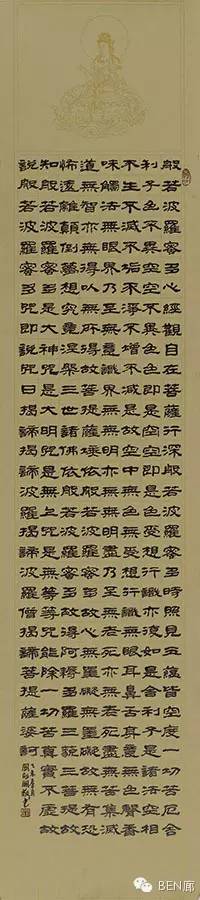 般若波羅密多心經觀自在菩薩行深般若波羅密多時照見五蘊皆空度一切苦厄舍
利子色不異空空不異色色即是空空即是色受想行識亦復如是舍利子是諸法空相
不生不滅不垢不淨不增不減是故空中無色無受想行識無眼耳鼻舌身意無色聲香
味觸法無眼界乃至無意識界無無明亦無無明盡乃至無老死亦無老死盡無苦集滅
道無智亦無得以無所得故菩提薩埵依般若波羅密多故心無罣礙無罣礙故無有恐
怖遠離顛倒夢想究竟涅槃三世諸佛依般若波羅密多故得阿耨多羅三藐三菩提故
知般若波羅密多是大神咒是大明咒是無上咒是無等等咒能除一切苦真實不虛故
說般若波羅密多咒即說咒曰揭諦揭諦波羅揭諦波羅僧揭諦菩提薩婆訶
BEN廊